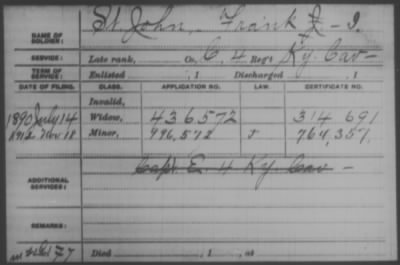 NAME OF SOLDIER: St. John, Frank
SERVICE: Late rank, Co. C, 4 Reg't Ky. Cav —
TERM OF SERVICE: Enlisted , 1 Discharged , 1
DATE OF FILING. CLASS. APPLICATION NO. LAW. CERTIFICATE NO.
Invalid,
1890 July 14 Widow, 436572 314 691
Nov 18 Minor, 996,572 764,357
ADDITIONAL SERVICES: Capt. E 4 Ky. Cav —
REMARKS:
Died , 1 , at